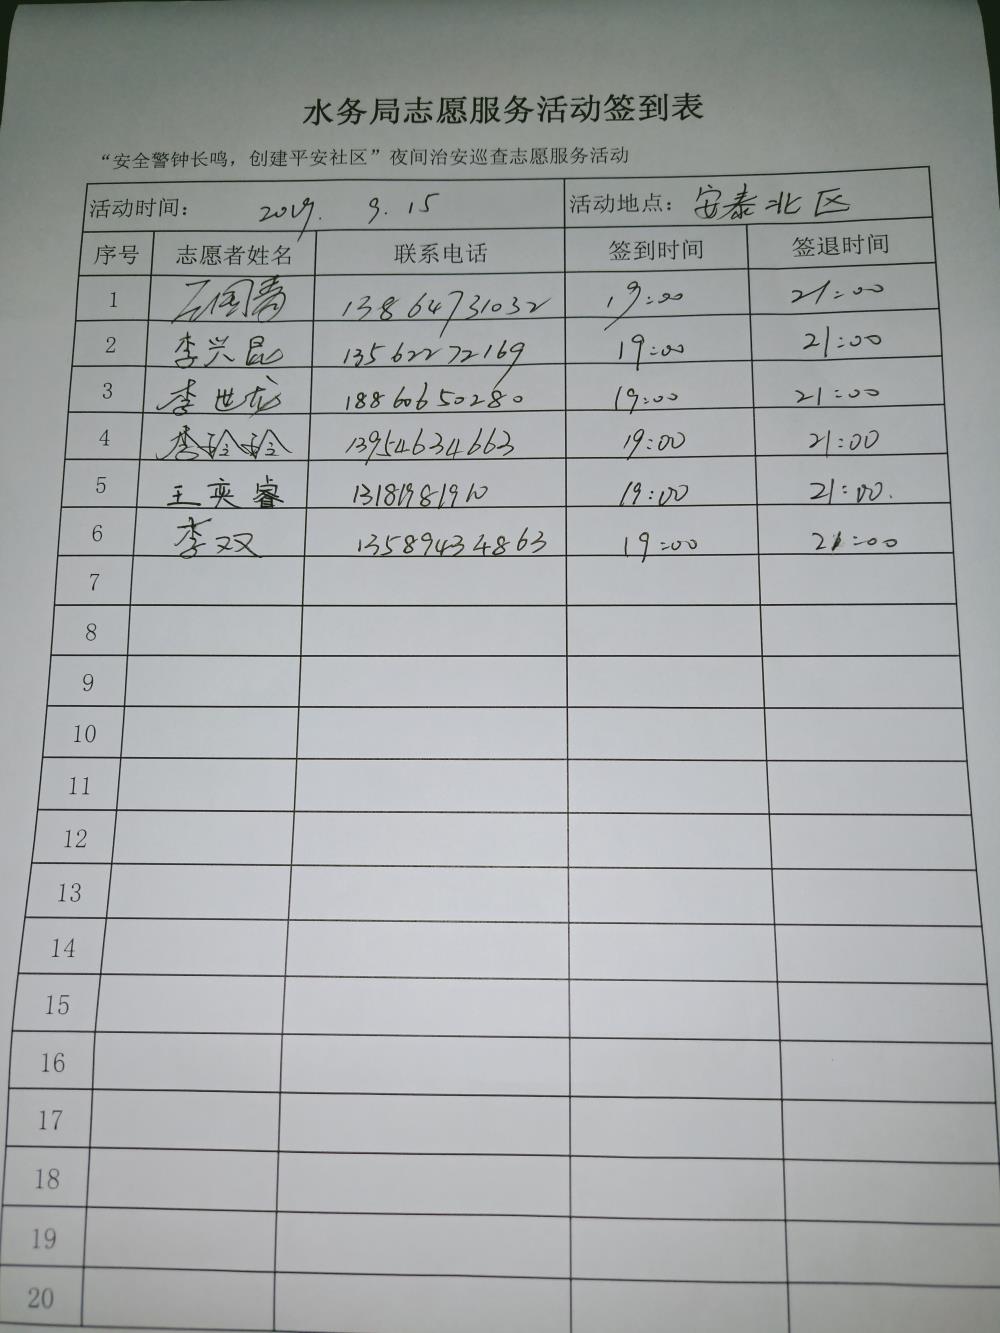 水务局志愿服务活动签到表
“安全警钟长鸣，创建平安社区”夜间治安巡查志愿服务活动
活动时间： 2019. 9. 15 活动地点： 安泰北区
序号 志愿者姓名 联系电话 签到时间 签退时间
1 13864731032 19:00 21:00
2 李兴昆 13562272169 19:00 21:00
3 李世龙 18860650280 19:00 21:00
4 李玲玲 13954634663 19:00 21:00
5 王奕睿 13181981910 19:00 21:00.
6 李双 13589434863 19:00 21:00
7
8
9
10
11
12
13
14
15
16
17
18
19
20